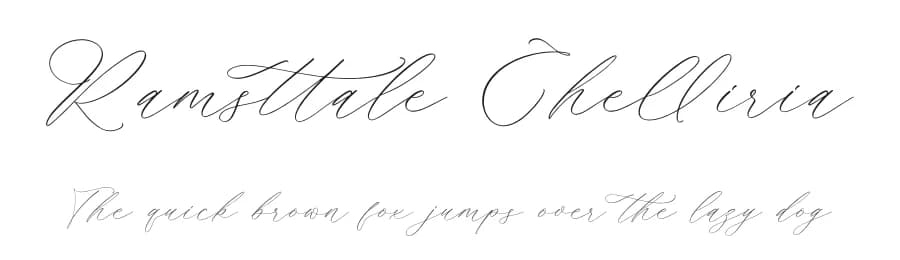 Ramsttale Chelliria
The quick brown fox jumps over the lazy dog